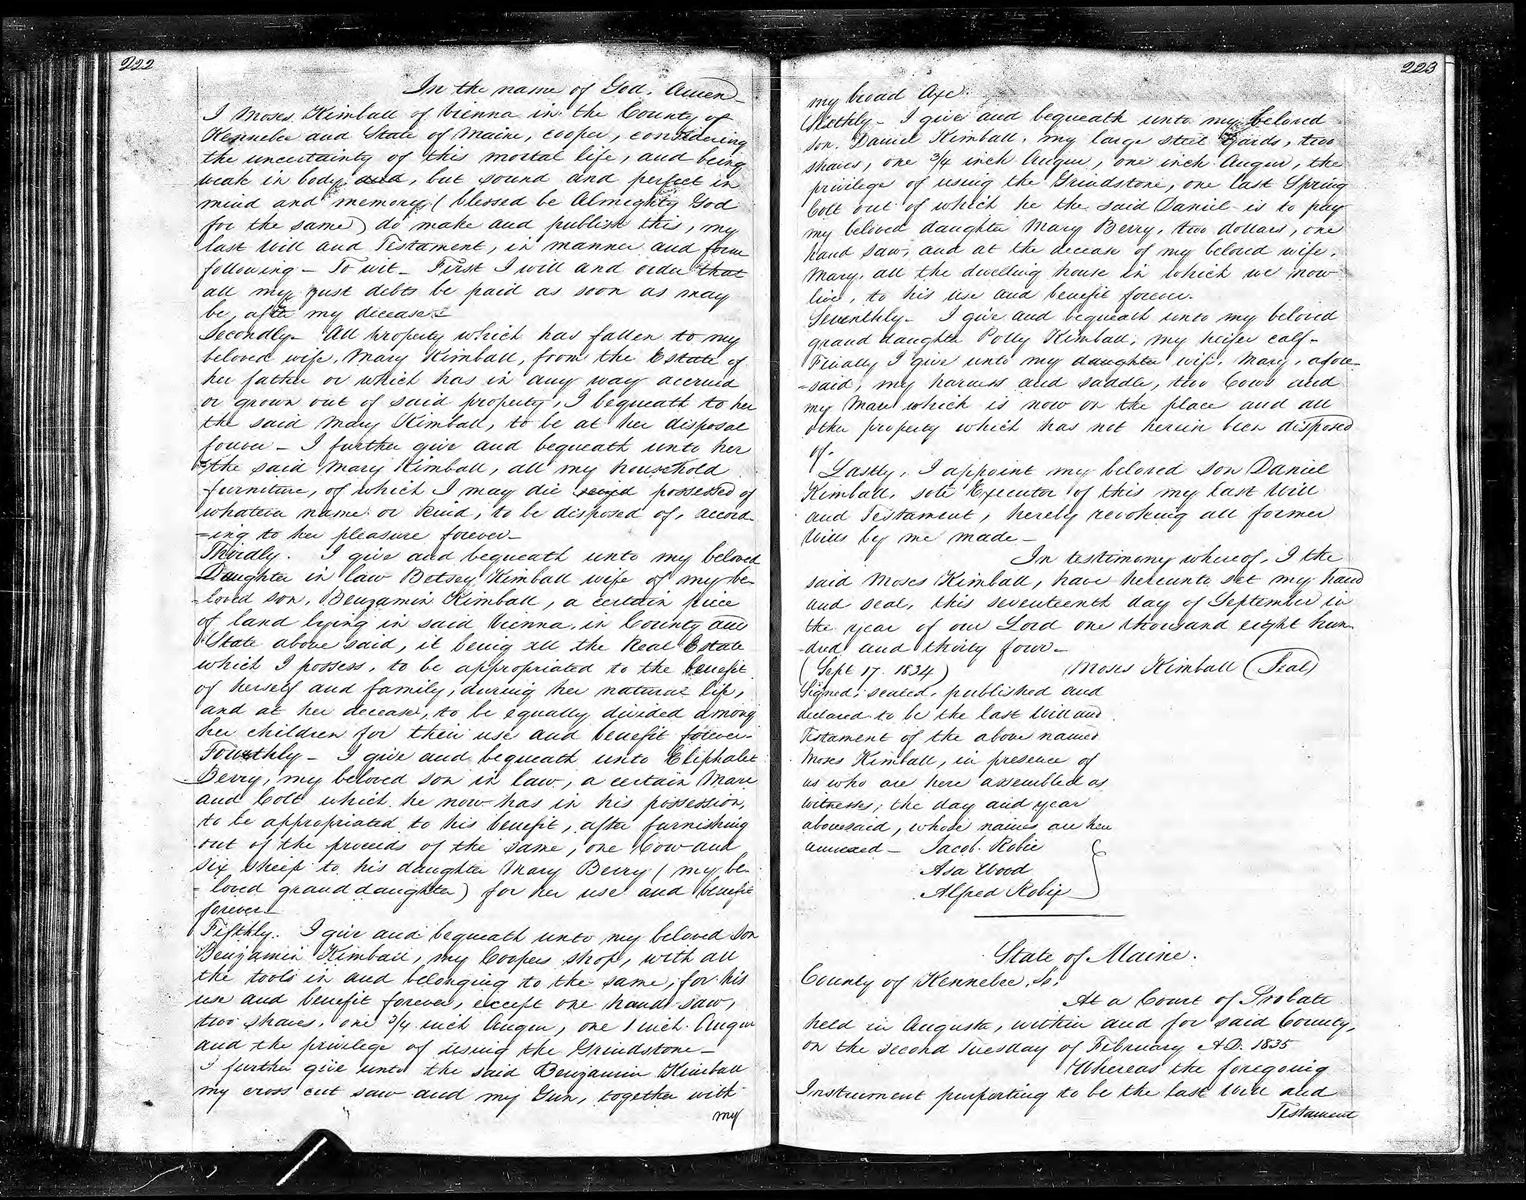 222
In the name of God. Amen
I Moses Kimball of Vienna in the County of
Kennebec and State of Maine, cooper, considering
the uncertainty of this mortal life, and being
weak in body and, but sound and perfect in
mind and memory (blessed be Almighty God
for the same) do make and publish this, my
last Will and Testament, in manner and form
following - To wit - First I will and order that
all my just debts be paid as soon as may
be, after my decease -
Secondly - All property which has fallen to my
beloved wife, Mary Kimball, from the Estate of
her father or which has in any way accrued
or grown out of said property, I bequeath to her
the said Mary Kimball, to be at her disposal
forever - I further give and bequeath unto her
the said Mary Kimball, all my household
furniture, of which I may die seized possessed of
whatever name or kind, to be disposed of, accord-
-ing to her pleasure forever -
Thirdly. I give and bequeath unto my beloved
Daughter in law Betsey Kimball wife of my be-
-loved son, Benjamin Kimball, a certain piece
of land lying in said Vienna, in County and
State above said, it being all the Real Estate
which I possess, to be appropriated to the benefit
of herself and family, during her natural life,
and at her decease, to be equally divided among
her children for their use and benefit forever -
Fourthly - I give and bequeath unto Eliphalet
Berry, my beloved son in law, a certain Mare
and Colt which he now has in his possession,
to be appropriated to his benefit, after furnishing
out of the proceeds of the same, one Cow and
six sheep to his daughter Mary Berry (my be-
-loved granddaughter) for her use and benefit
forever -
Fifthly. I give and bequeath unto my beloved Son
Benjamin Kimball, my Coopers shop, with all
the tools in and belonging to the same, for his
use and benefit forever, except one hand saw,
two shaves, one 3/4 inch Auger, one 1 inch Auger
and the privilege of using the Grindstone -
I further give unto the said Benjamin Kimball
my cross cut saw and my Gun, together with
my
223
my broad Axe.
Sixthly - I give and bequeath unto my beloved
son, Daniel Kimball, my large steel yards, two
shaves, one 3/4 inch Auger, one inch Auger, the
privilege of using the Grindstone, one last Spring
Colt out of which he the said Daniel is to pay
my beloved daughter Mary Berry, two dollars, one
hand saw, and at the decease of my beloved wife,
Mary, all the dwelling house in which we now
live, to his use and benefit forever.
Seventhly - I give and bequeath unto my beloved
grand daughter Polly Kimball, my heifer calf -
Finally I give unto my daughter wife, Mary, afore-
-said, my harness and saddle, two Cows and
my Mare which is now on the place and all
other property which has not herein been disposed
of.
Lastly, I appoint my beloved son Daniel
Kimball, sole Executor of this my last Will
and Testament, hereby revoking all former
Wills by me made -
In testimony whereof, I the
said Moses Kimball, have hereunto set my hand
and seal, this seventeenth day of September in
the year of our Lord one thousand eight hun-
-dred and thirty four -
(Sept 17. 1834) Moses Kimball (Seal)
Signed, sealed, published and
declared to be the last Will and
Testament of the above named
Moses Kimball, in presence of
us who are here assembled as
witnesses, the day and year
abovesaid, whose names are here
annexed - Jacob Robie
Asa Wood
Alfred Robie
State of Maine.
County of Kennebec, Ss.
At a Court of Probate
held in Augusta, within and for said County,
on the second Tuesday of February A.D. 1835
Whereas the foregoing
Instrument purporting to be the last Will and
Testament